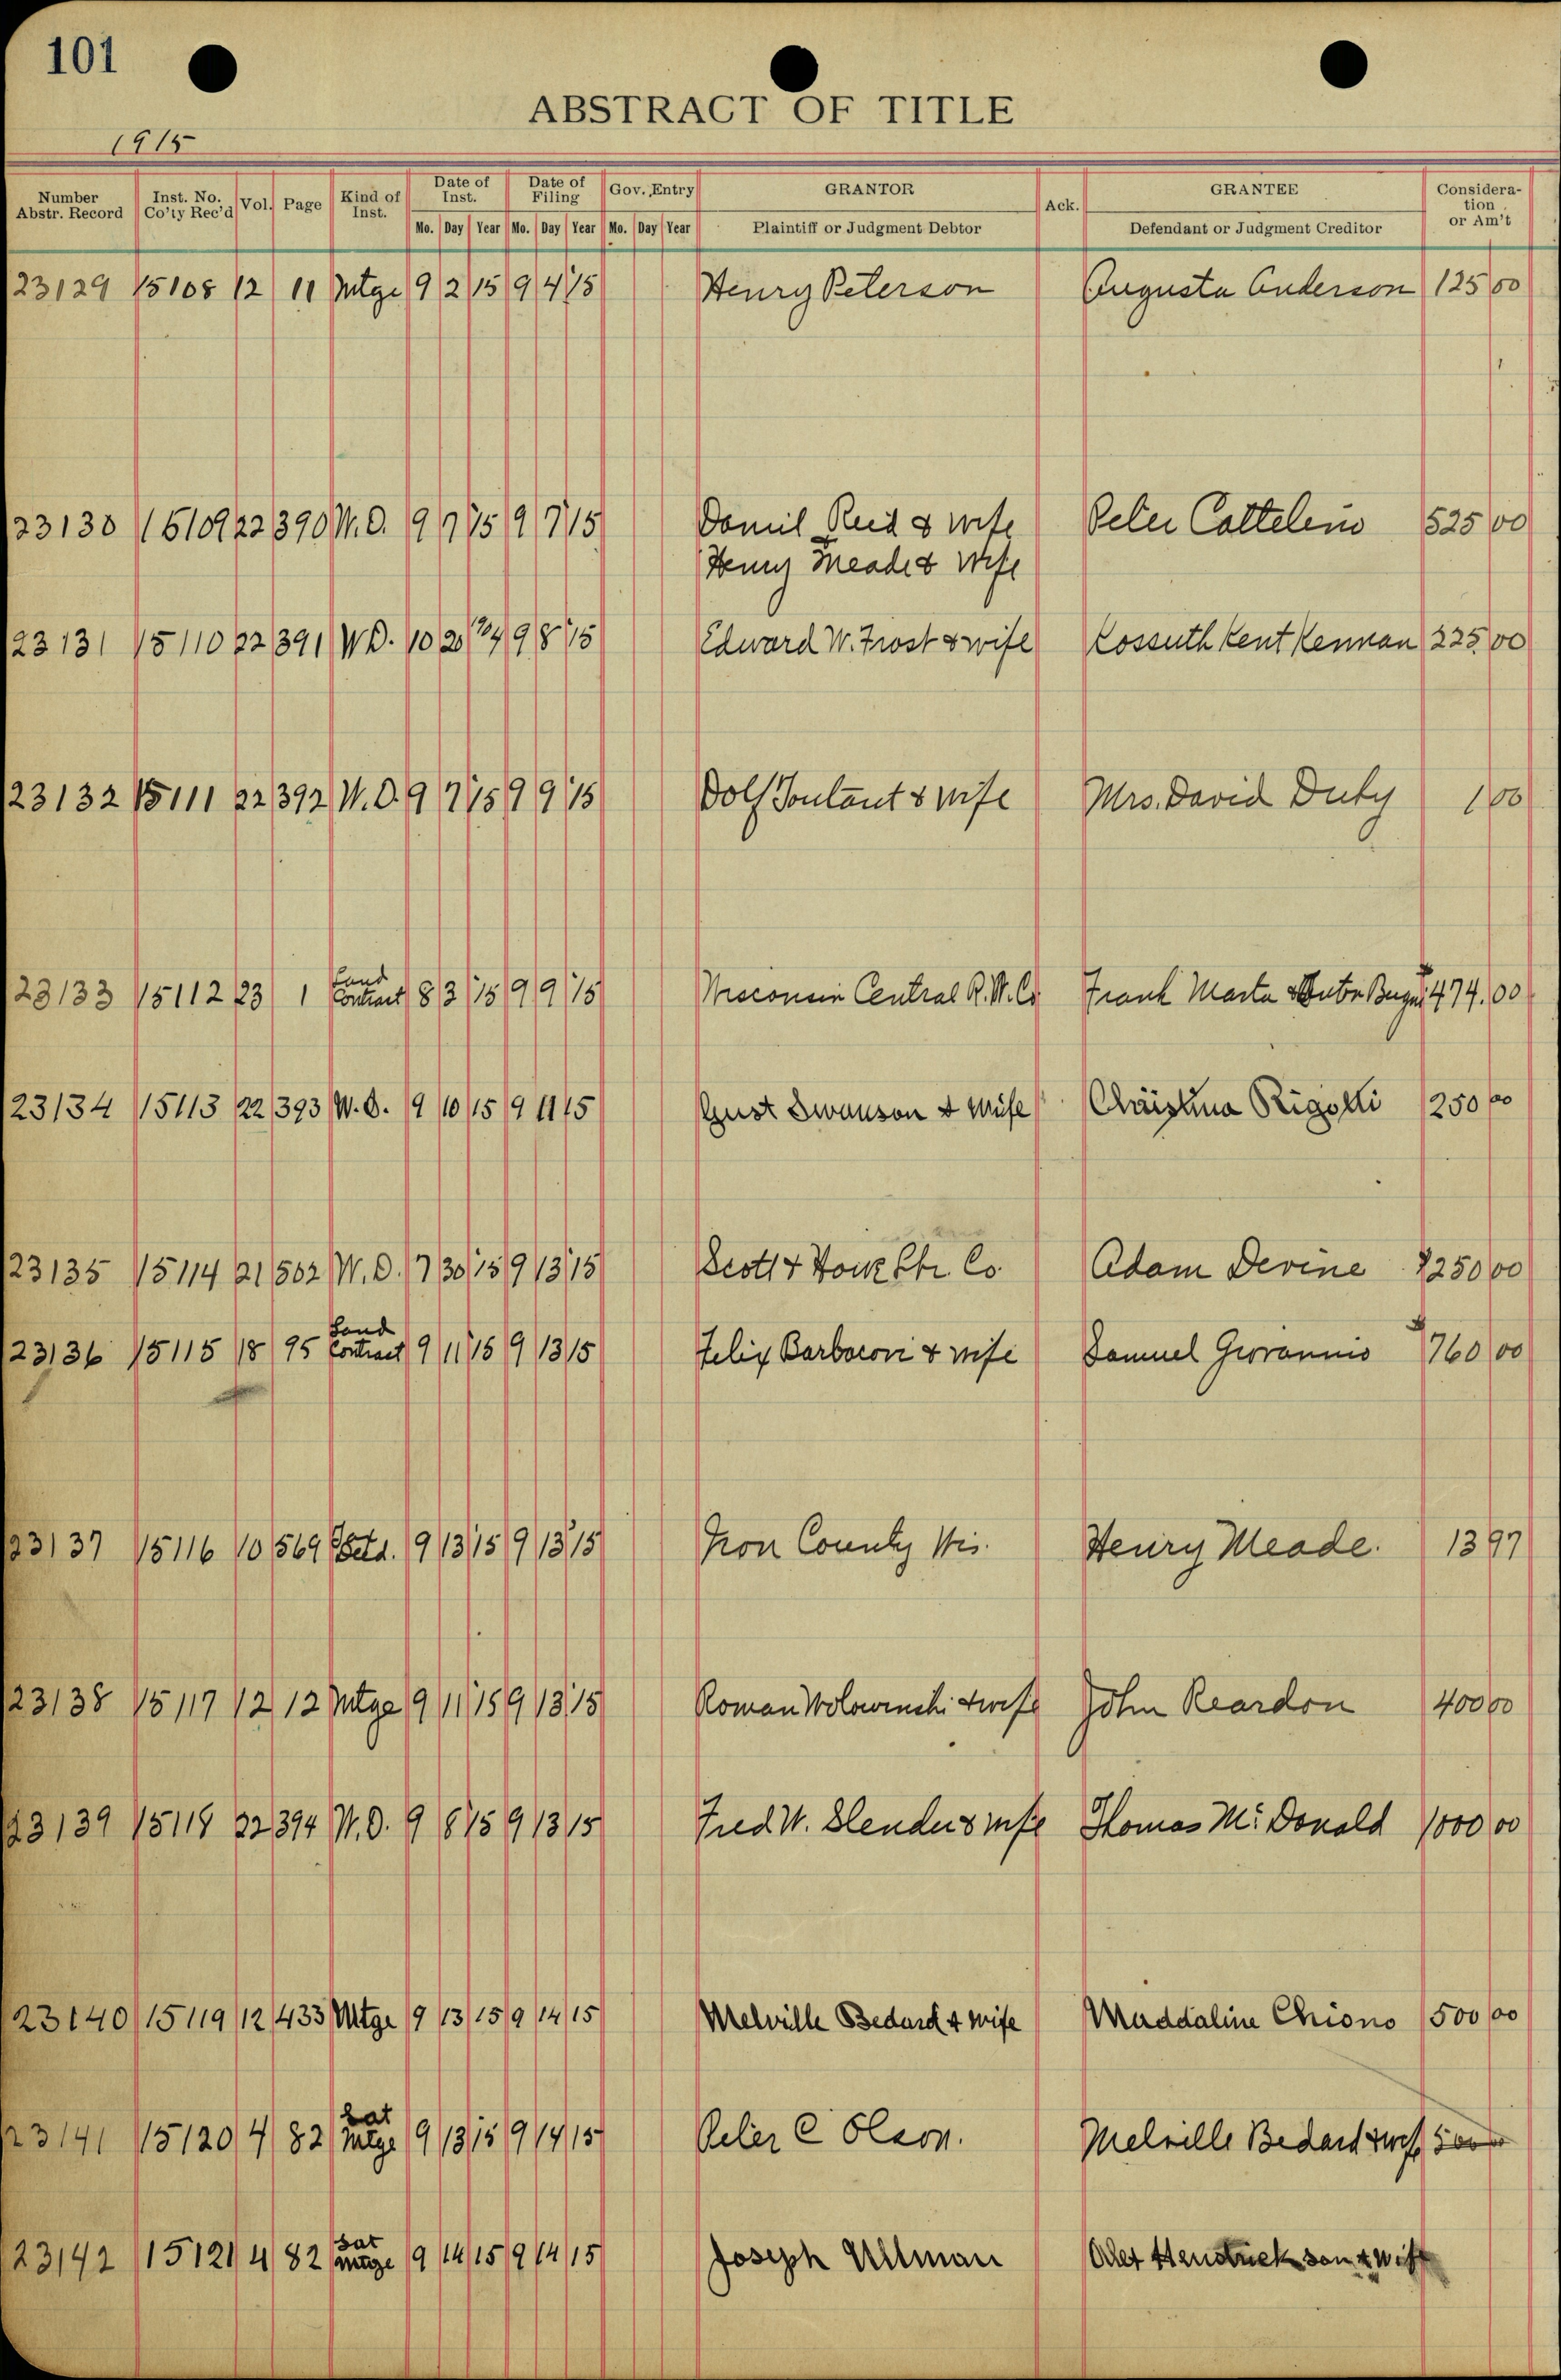 101
ABSTRACT OF TITLE
1915
Number Abstr. Record Inst. No. Co'ty Rec'd Vol. Page Kind of Inst. Date of Inst. Mo. Day Year Date of Filing Mo. Day Year Gov. Entry Mo. Day Year GRANTOR Plaintiff or Judgment Debtor Ack. GRANTEE Defendant or Judgment Creditor Consideration or Am't
23129 15108 12 11 Mtge 9 2 15 9 4 15 Henry Peterson Augusta Anderson 125 00
23130 15109 22 390 W.D. 9 7 15 9 7 15 Daniel Reid & wife Peter Cattelino 525 00
Henry Meade & Wife
23131 15110 22 391 W.D. 10 20 04 9 8 15 Edward W. Frost & wife Kossuth Kent Kennan 225 00
23132 15111 22 392 W.D. 9 7 15 9 9 15 Dolf Toutant & wife Mrs. David Duby 1 00
23133 15112 23 1 Land Contract 8 3 15 9 9 15 Wisconsin Central R.W. Co Frank Marta & 474.00
23134 15113 22 393 W.D. 9 10 15 9 11 15 Gust Swanson & Wife Christina Rigotti 250 00
23135 15114 21 502 W.D. 7 30 15 9 13 15 Scott & Howe Lbr. Co. Adam Devine 250 00
23136 15115 18 95 Land Contract 9 11 15 9 13 15 Felix Barbacovi & wife Samuel Giovannis 760 00
23137 15116 10 569 9 13 15 9 13 15 Iron County Wis. Henry Meade. 13 97
23138 15117 12 12 Mtge 9 11 15 9 13 15 Roman & wife John Reardon 400 00
23139 15118 22 394 W.D. 9 8 15 9 13 15 Fred W. Slender & wife Thomas Mc Donald 1000 00
23140 15119 12 433 Mtge 9 13 15 9 14 15 Melville Bedard & wife Maddaline Chiono 500 00
23141 15120 4 82 Sat Mtge 9 13 15 9 14 15 Peter C Olson. Melville Bedard & wife 500
23142 15121 4 82 Sat Mtge 9 14 15 9 14 15 Joseph Ullman Alex Hendrickson & wife